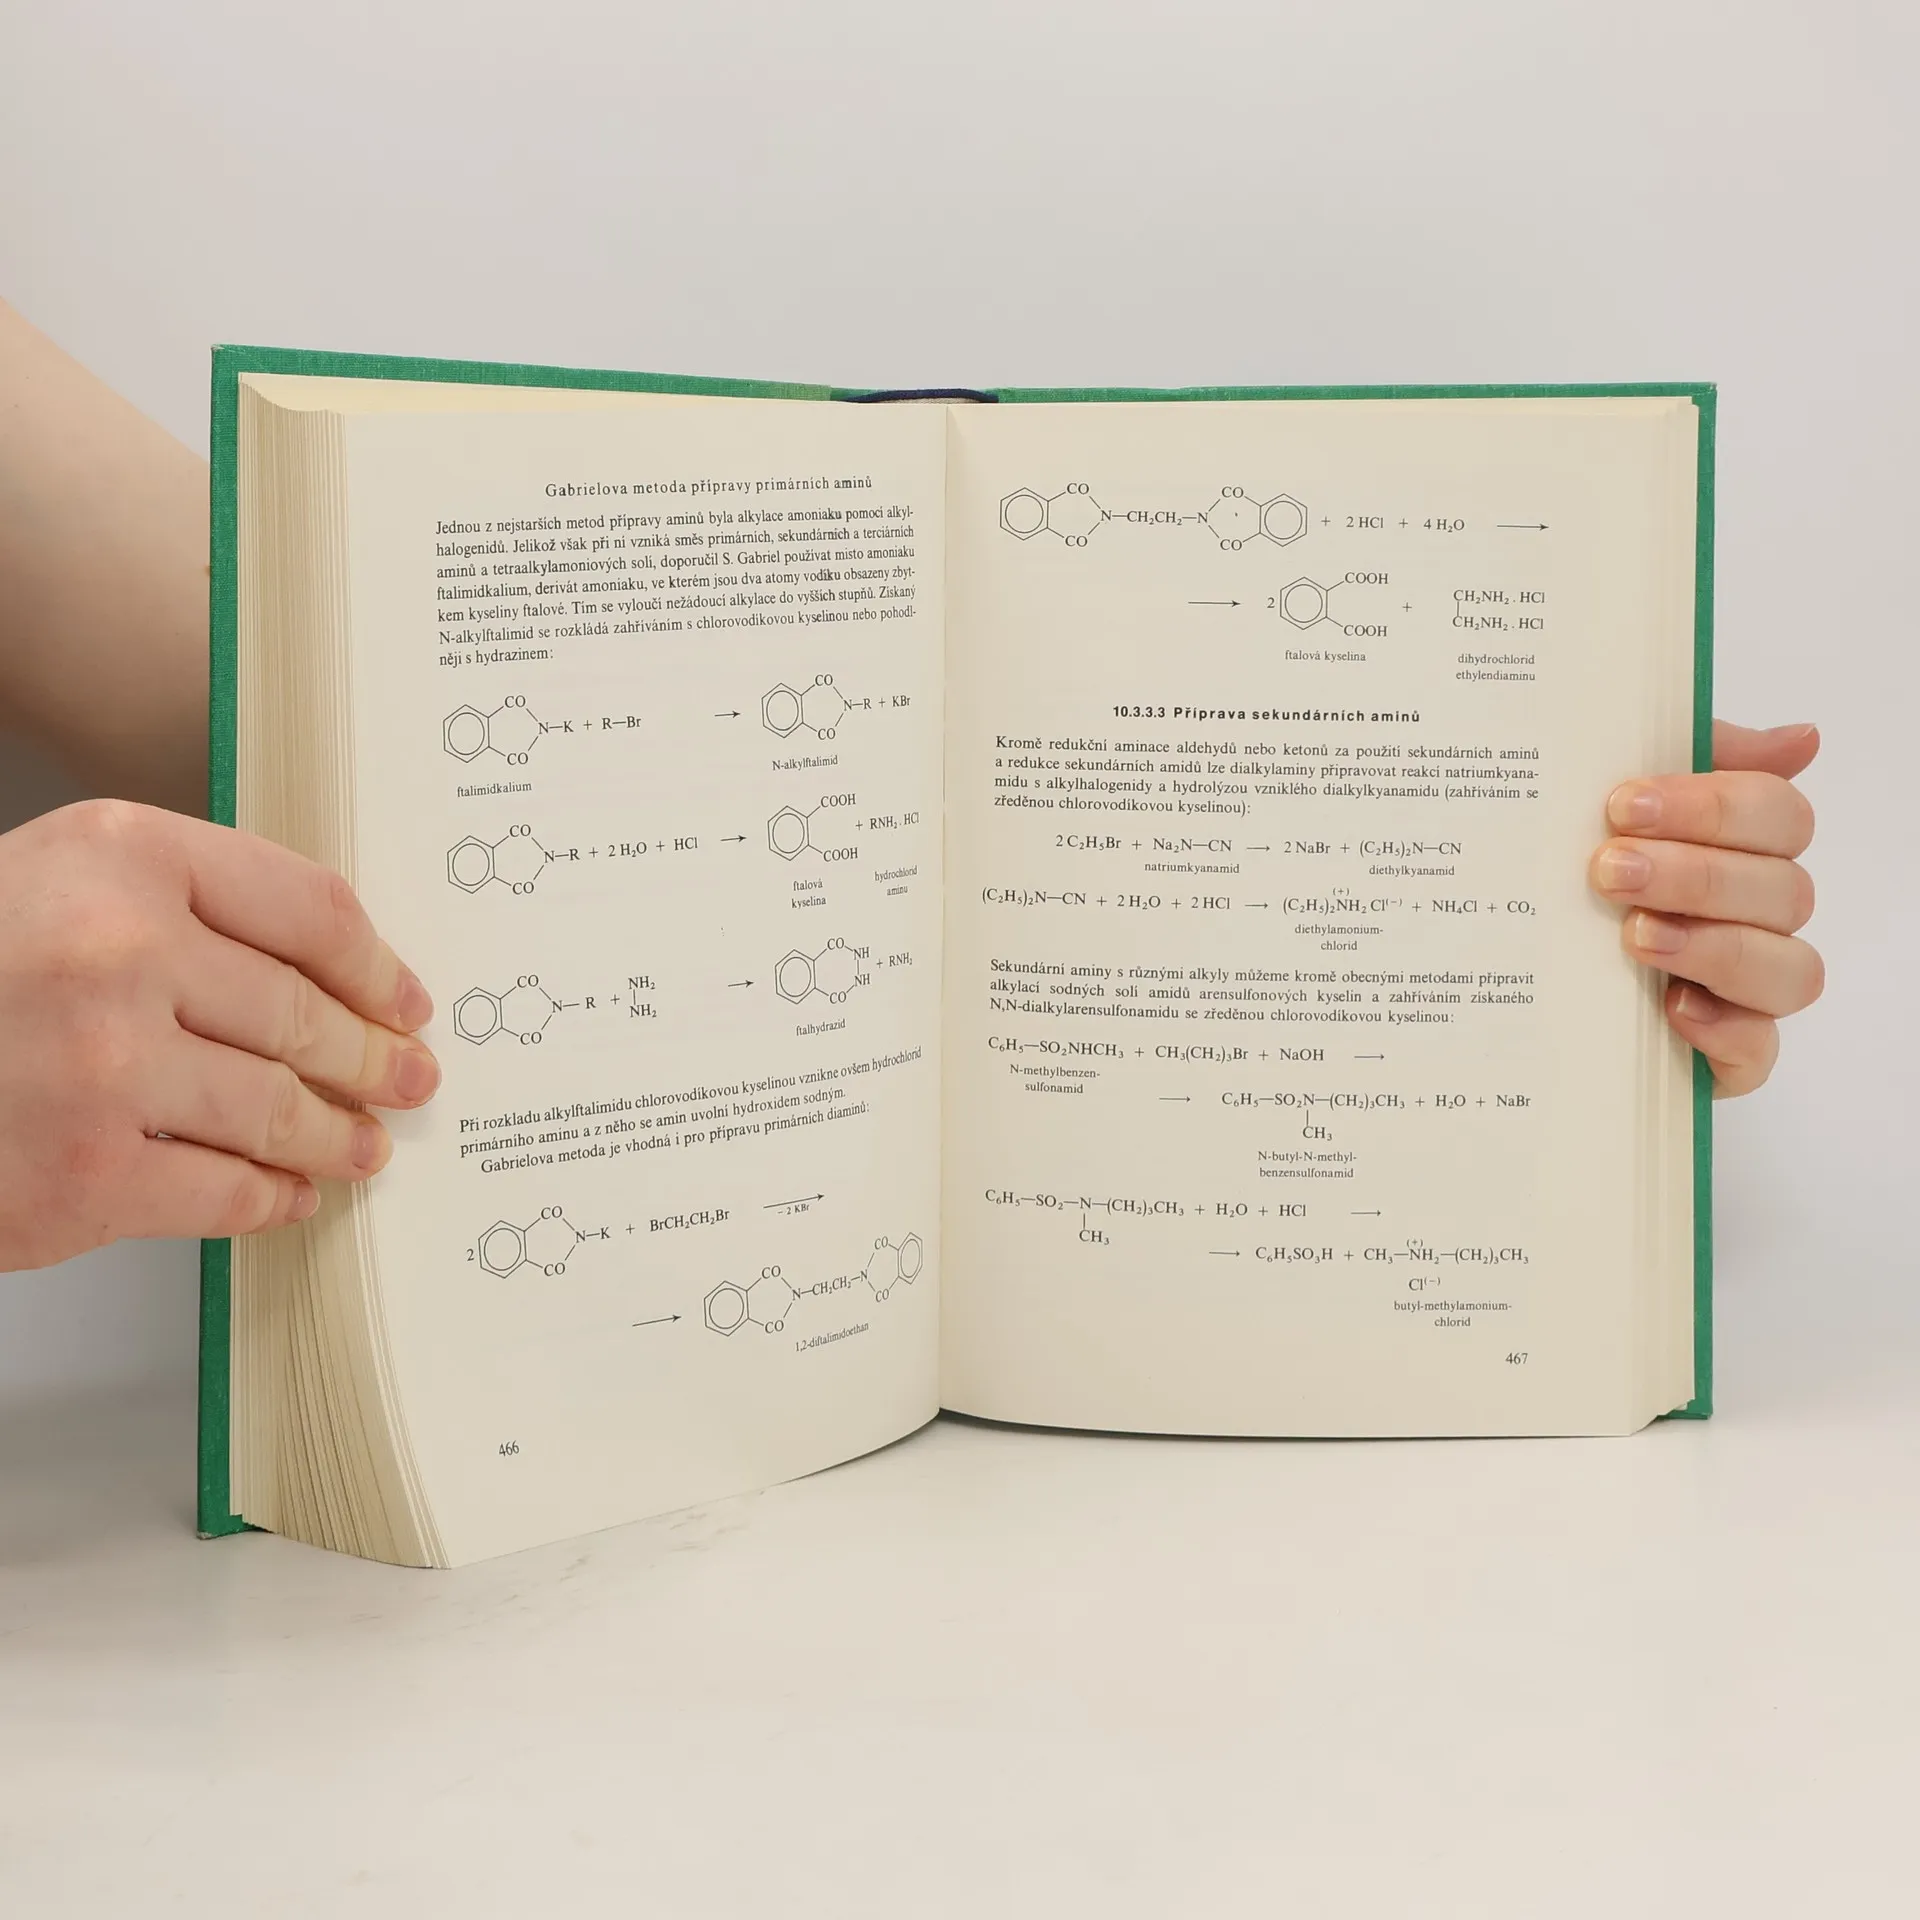 Gabrielova metoda přípravy primárních aminů
Jednou z nejstarších metod přípravy aminů byla alkylace amoniaku pomocí alkyl-
halogenidů. Jelikož však při ní vzniká směs primárních, sekundárních a terciárních
aminů a tetraalkylamoniových solí, doporučil S. Gabriel používat místo amoniaku
ftalimidkalium, derivát amoniaku, ve kterém jsou dva atomy vodíku obsazeny zbyt-
kem kyseliny ftalové. Tím se vyloučí nežádoucí alkylace do vyšších stupňů. Získaný
N-alkylftalimid se rozkládá zahříváním s chlorovodíkovou kyselinou nebo pohodl-
něji s hydrazinem:
CO CO
N—K + R—Br → N—R + KBr
CO CO
ftalimidkalium N-alkylftalimid
CO COOH
N—R + 2 H₂O + HCl → + RNH₂ . HCl
CO COOH
ftalová hydrochlorid
kyselina aminu
CO NH₂ CO NH
N—R + | → | + RNH₂
CO NH₂ CO NH
ftalhydrazid
Při rozkladu alkylftalimidu chlorovodíkovou kyselinou vznikne ovšem hydrochlorid
primárního aminu a z něho se amin uvolní hydroxidem sodným.
Gabrielova metoda je vhodná i pro přípravu primárních diaminů:
CO
2 N—K + BrCH₂CH₂Br → − 2 KBr
CO
CO CO
→ N—CH₂CH₂—N
CO CO
1,2-diftalimidoethan
466
CO CO
N—CH₂CH₂—N + 2 HCl + 4 H₂O →
CO CO
COOH CH₂NH₂ . HCl
→ 2 + |
COOH CH₂NH₂ . HCl
ftalová kyselina dihydrochlorid
ethylendiaminu
10.3.3.3 Příprava sekundárních aminů
Kromě redukční aminace aldehydů nebo ketonů za použití sekundárních aminů
a redukce sekundárních amidů lze dialkylaminy připravovat reakcí natriumkyana-
midu s alkylhalogenidy a hydrolýzou vzniklého dialkylkyanamidu (zahříváním se
zředěnou chlorovodíkovou kyselinou):
2 C₂H₅Br + Na₂N—CN → 2 NaBr + (C₂H₅)₂N—CN
natriumkyanamid diethylkyanamid
(+)
(C₂H₅)₂N—CN + 2 H₂O + 2 HCl → (C₂H₅)₂NH₂ Cl⁽⁻⁾ + NH₄Cl + CO₂
diethylamonium-
chlorid
Sekundární aminy s různými alkyly můžeme kromě obecnými metodami připravit
alkylací sodných solí amidů arensulfonových kyselin a zahříváním získaného
N,N-dialkylarensulfonamidu se zředěnou chlorovodíkovou kyselinou:
C₆H₅—SO₂NHCH₃ + CH₃(CH₂)₃Br + NaOH →
N-methylbenzen-
sulfonamid
→ C₆H₅—SO₂N—(CH₂)₃CH₃ + H₂O + NaBr
|
CH₃
N-butyl-N-methyl-
benzensulfonamid
C₆H₅—SO₂—N—(CH₂)₃CH₃ + H₂O + HCl →
|
CH₃
(+)
→ C₆H₅SO₃H + CH₃—NH₂—(CH₂)₃CH₃
Cl⁽⁻⁾
butyl-methylamonium-
chlorid
467